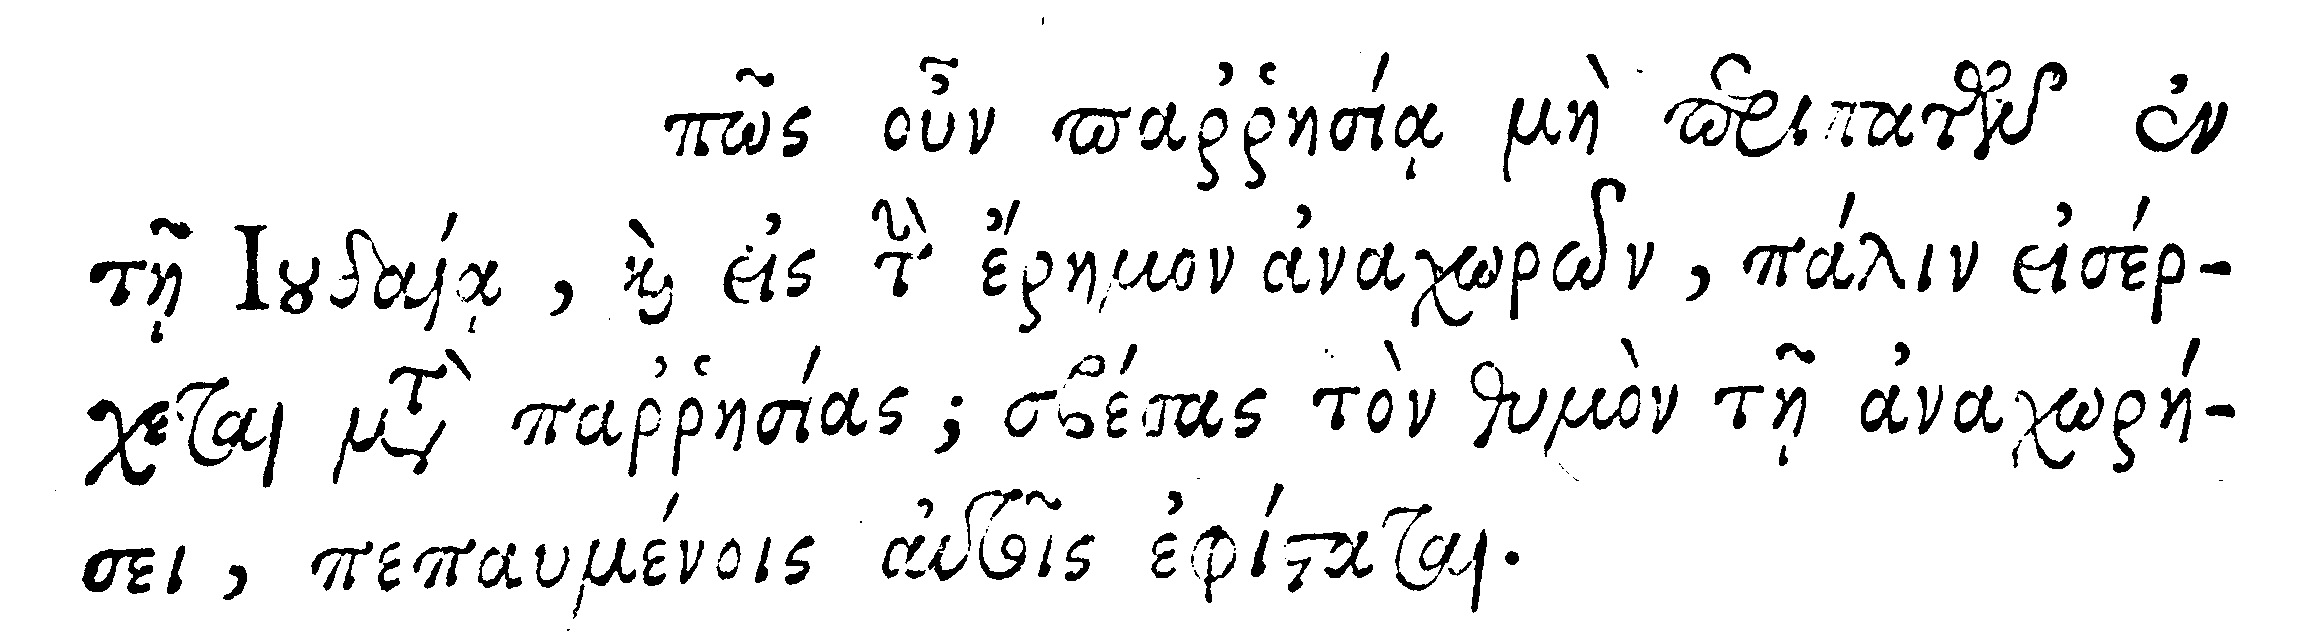 πῶς οὖν παῤῥησίᾳ μὴ περιπατῶν ἐν
τῇ Ιουδαίᾳ, καὶ εἰς τὴν ἔρημον ἀναχωρῶν, πάλιν εἰσέρ-
χεται μετὰ παῤῥησίας; σβέσας τὸν θυμὸν τῇ ἀναχωρή-
σει, πεπαυμένοις αὐτοῖς ἐφίσταται.